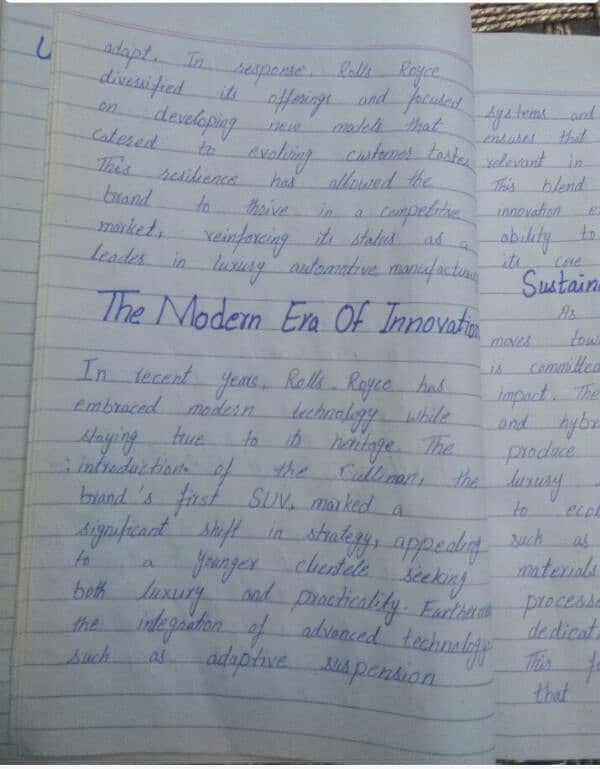 U
adapt. In response, Rolls Royce
diversified its offerings and focused
on developing new models that
catered to evolving customer tastes
This resilience has allowed the
brand to thrive in a competitive
market, reinforcing its status as a
leader in luxury automotive manufacturing
The Modern Era Of Innovation
In recent years, Rolls Royce has
embraced modern technology while
staying true to its heritage. The
introduction of the Cullinan, the
brand's first SUV, marked a
significant shift in strategy, appealing
to a younger clientele seeking
both luxury and practicality. Furthermo
the integration of advanced technology
such as adaptive suspension
systems and
ensures that
relevant in
This blend
innovation
ability to
its core
Sustain
As
moves tow
is committed
impact. The
and hybr
produce
luxury
to ecol
such as
materials
processe
dedicat
This f
that